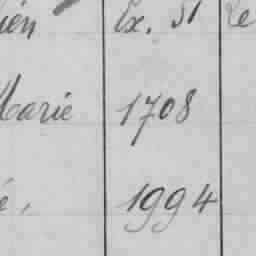 ién Ex. 51 Le
Marie 1708
é, 1994